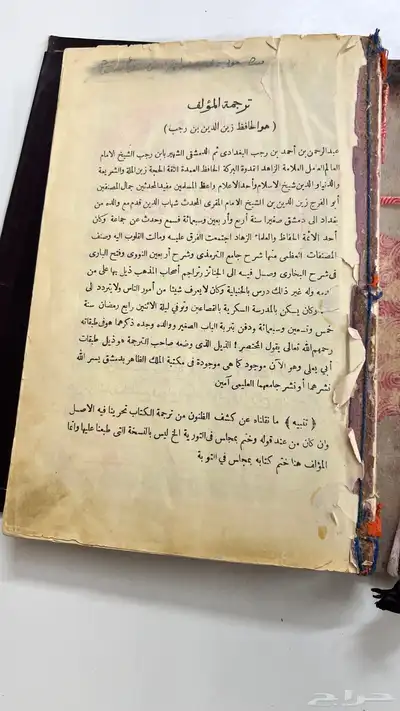 ترجمة المؤلف
( هو الحافظ زين الدين بن رجب )
عبدالرحمن بن أحمد بن رجب البغدادى ثم الدمشقي الشهير بابن رجب الشيخ الامام
العالم العامل العلامة الزاهد القدوة البركة الحافظ العمدة الثقة الحجة زين الملة والشريعة
والدنيا والدين شيخ الاسلام وأحد الاعلام واعظ المسلمين مفيد المحدثين جمال المصنفين
أبو الفرج زين الدين بن الشيخ الامام المقرى المحدث شهاب الدين قدم مع والده من
بغداد الى دمشق صغيرا سنة أربع وأربعين وسبعمائة فسمع وحدث عن جماعة وكان
أحد الائمة الحفاظ والعلماء الزهاد اجتمعت الفرق عليه ومالت القلوب اليه وصنف
المصنفات العظمى منها شرح جامع الترمذى وشرح أربعين النووى وفتح البارى
فى شرح البخارى وصل فيه الى الجنائز وتراجم أصحاب المذهب ذيل بها على من
تقدمه وله غير ذلك درس بالحنبلية وكان لا يعرف شيئا من أمور الناس ولا يتردد الى
وكان يسكن بالمدرسة السكرية بالقصاعين وتوفي ليلة الاثنين رابع رمضان سنة
خمس وتسعين وسبعمائة ودفن بتربة الباب الصغير ووالده وجده ذكرهما هو فى طبقاته
رحمهم الله تعالى يقول المختصر ! الذيل الذى وضعه صاحب الترجمة هو ذيل طبقات
أبي يعلى وهو الآن موجود كما هى موجودة فى مكتبة الملك الظاهر بدمشق يسر الله
نشرهما أو نشر جامعهما العليمى آمين
﴿ تنبيه ﴾ ما نقلناه عن كشف الظنون من ترجمة الكتاب تحرينا فيه الاصل
وان كان من عند قوله وختم بمجاس فى التورية الخ ليس بالنسخة التى طبعنا عليها وانما
المؤلف هنا ختم كتابه بمجاس في التوبة
حراج